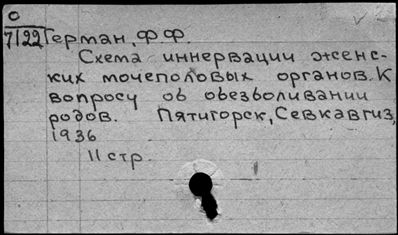 О
7/22 Герман, Ф.Ф.
Схема иннервации женс-
ких мочеполовых органов. К
вопросу об обезболивании
родов. Пятигорск, Севкавгиз,
1936
11 стр.